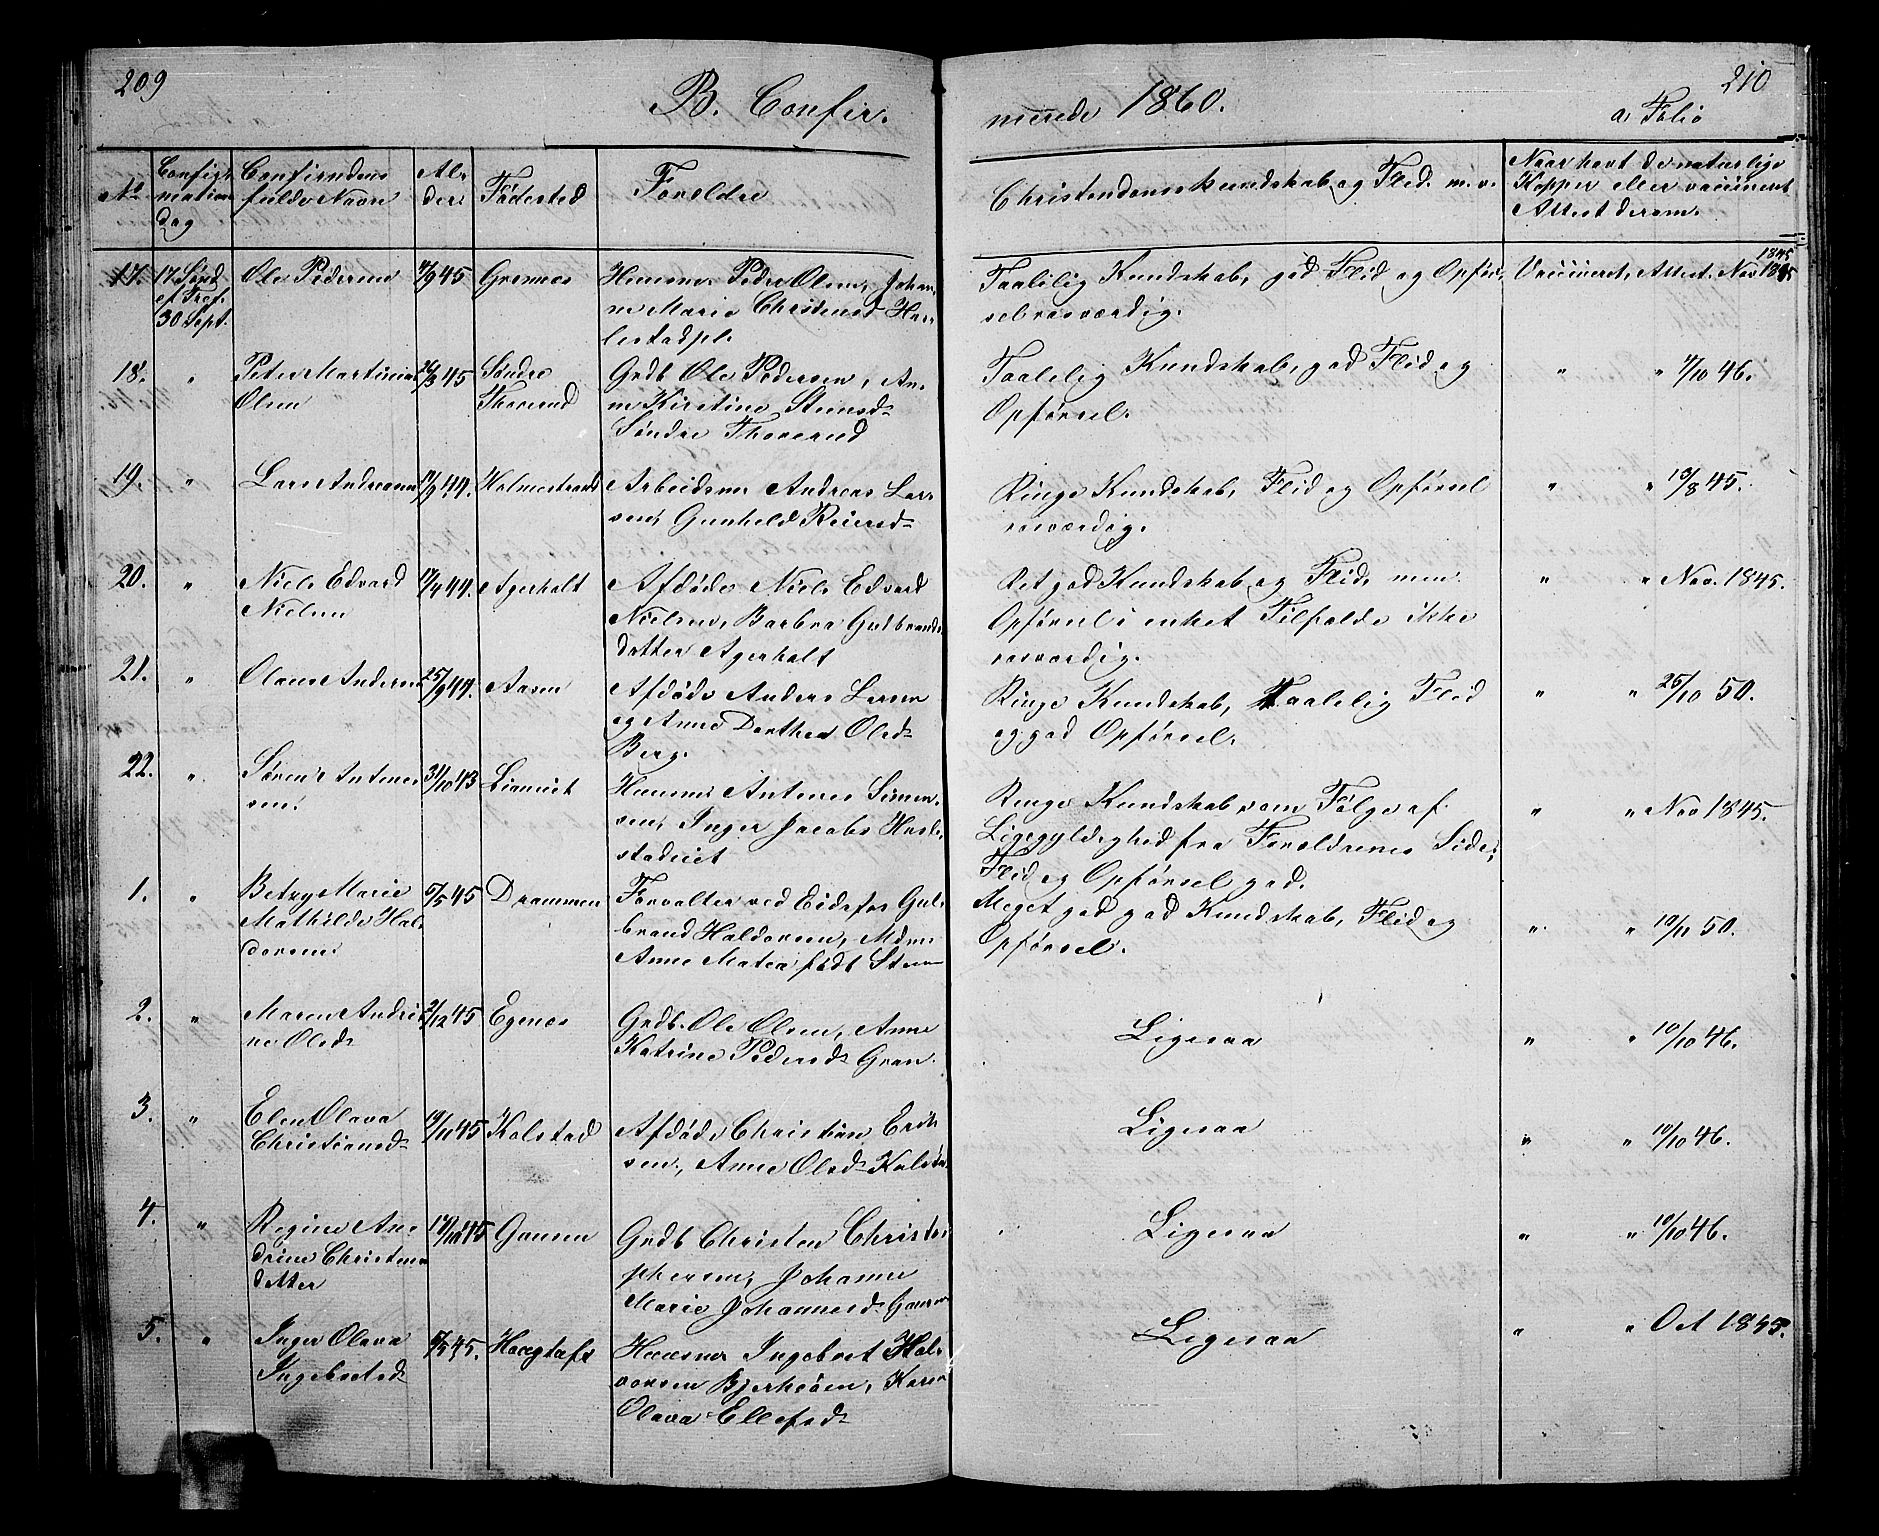 209
B. Confir-
merede 1860.
210
a, Folio
No
Confir-
mations
dag
Confirmdens
fulde Navn
Al-
der
Födested
Foreldre
Christendomskundskab og Flid m. v.
Naar havt de naturlige
Kopper eller vaccineret
Attest derom.
17. 17. Sønd
ef. Tref.
30 Sept.
Ole Pedersen
45
Grennes
Huusm. Peder Olsen, Johan-
ne Marie Christensd
Taalelig Kundskab, god Flid og Opför-
sel rosværdig.
Vaccineret, Attest. Nov 1845
1845
18. "
Peter Martinius
Olsen
45
Søndre
Thorerud
Grdb. Ole Pedersen, An-
ne Kirstine Steensd
Søndre Thorerud
Taalelig Kundskab, god Flid og
Opførsel.
" " 4/10 46.
19. "
Lars Andreasen
44.
Holmestrand
Arbeidsm. Andreas Lar-
sen, Gunhild
Ringe Kundskab, Flid og Opførsel
rosværdig.
" " 10/8 45.
20. "
Niels Edvard
Nielsen
44.
Agerholt
Afdøde Niels Edvard
Nielsen, Barbra Gudbrands-
datter Agerholt
Ret god Kundskab og Flid, men
Opførsel i enket Tilfælde ikke
rosværdig.
" " Nov. 1845.
21. "
Olaus Andersen
25/9 44.
Aasen
Afdøde Anders Larsen
og Anne Dorthea Olsd
Berg.
Ringe Kundskab, Taalelig Flid
og god Opførsel.
" " 25/10 50.
22. "
Søren Antonis-
sen.
31/10 43
Huusm. Antonis Simen-
sen, Inger Jacobs
Ringe Kundskab som Følge af
Ligegyldighed fra Foreldrenes Side,
Flid og Opførsel god.
" " Nov 1845.
1. "
Betzy Marie
Mathilde Hal-
dorsen
5/5 45
Drammen
Forvalter ved Eidsfos Gul-
brand Haldorsen, Mdm.
Anne Matea født
Meget god god Kundskab, Flid og
Opførsel.
" " 10/11 50.
2. "
Maren Andri-
ne Olsd
2/12 45
Egenes
Grdb. Ole Olsen, Anne
Katrine Pedersd Gran.
Ligesaa
" " 10/10 46.
3. "
Elen Olava
Christiansd
19/11 45
Kolstad
Afdøde Christian Erik-
sen, Anne Olsd Kolstad
Ligesaa
" " 10/10 46.
4. "
Regine An-
drine Christens-
datter
45
Gausen
Grdb Christen Christo-
phersen, Johanne
Marie Johannesd. Gausen
Ligesaa
" " 10/10 46.
5. "
Inger Olava
Ingebretsd
45.
Huusm. Ingebret Hal-
vorsen Bjerkøen, Karen
Olava Ellefsd
Ligesaa
" " Oct 1845.